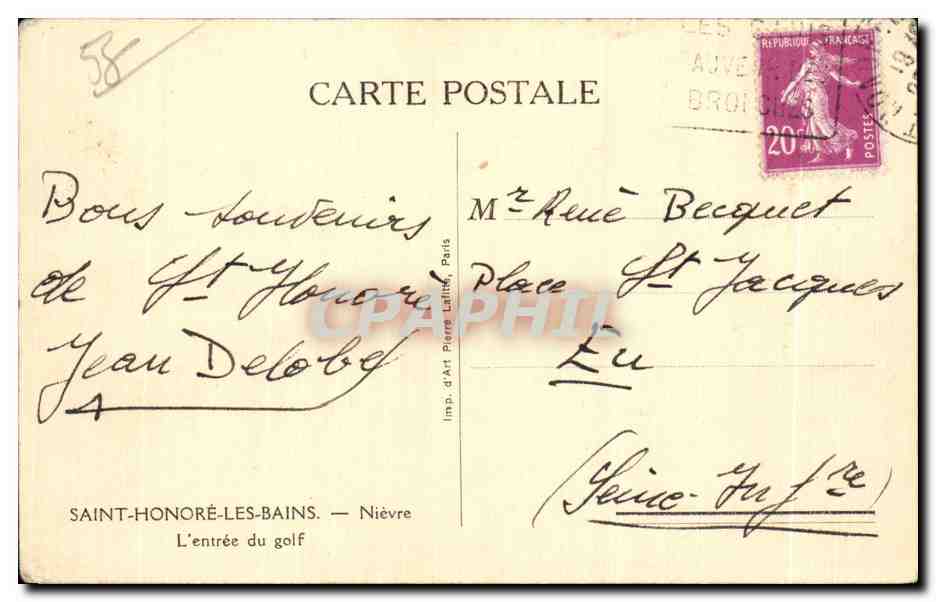 58
CARTE POSTALE
LES
AUVE
BRONCHES
RÉPUBLIQUE FRANÇAISE
20c
POSTES
Bons souvenirs
de St Honoré
Jean Delobel
Mr René Becquet
Place St Jacques
Eu
(Seine-Infre)
Imp. d'Art Pierre Lafitte, Paris
CPAPHIL
SAINT-HONORÉ-LES-BAINS. — Nièvre
L'entrée du golf